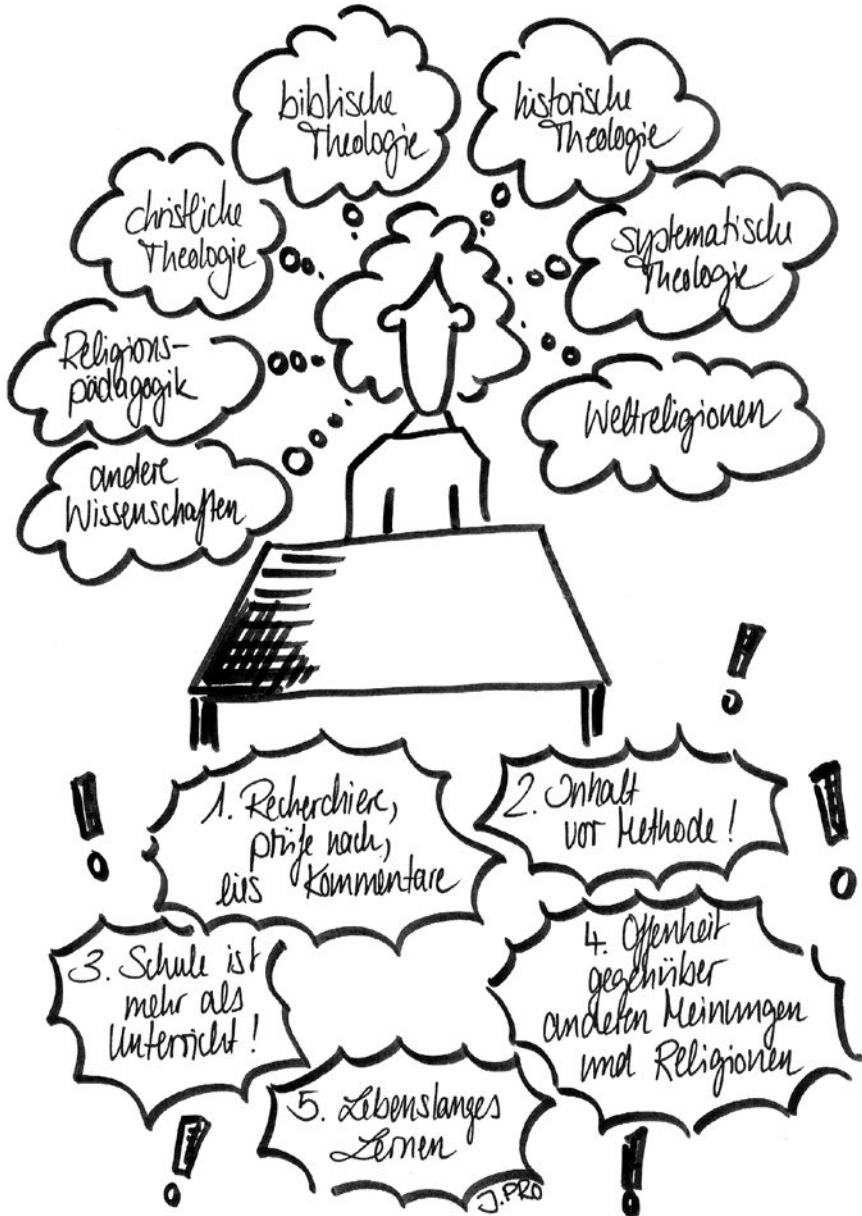 biblische
Theologie
historische
Theologie
christliche
Theologie
systematische
Theologie
Religions-
pädagogik
Weltreligionen
andere
Wissenschaften
1. Recherchiere,
prüfe nach,
lies Kommentare
2. Inhalt
vor Methode!
3. Schule ist
mehr als
Unterricht!
4. Offenheit
gegenüber
anderen Meinungen
und Religionen
5. Lebenslanges
Lernen
J.PRO